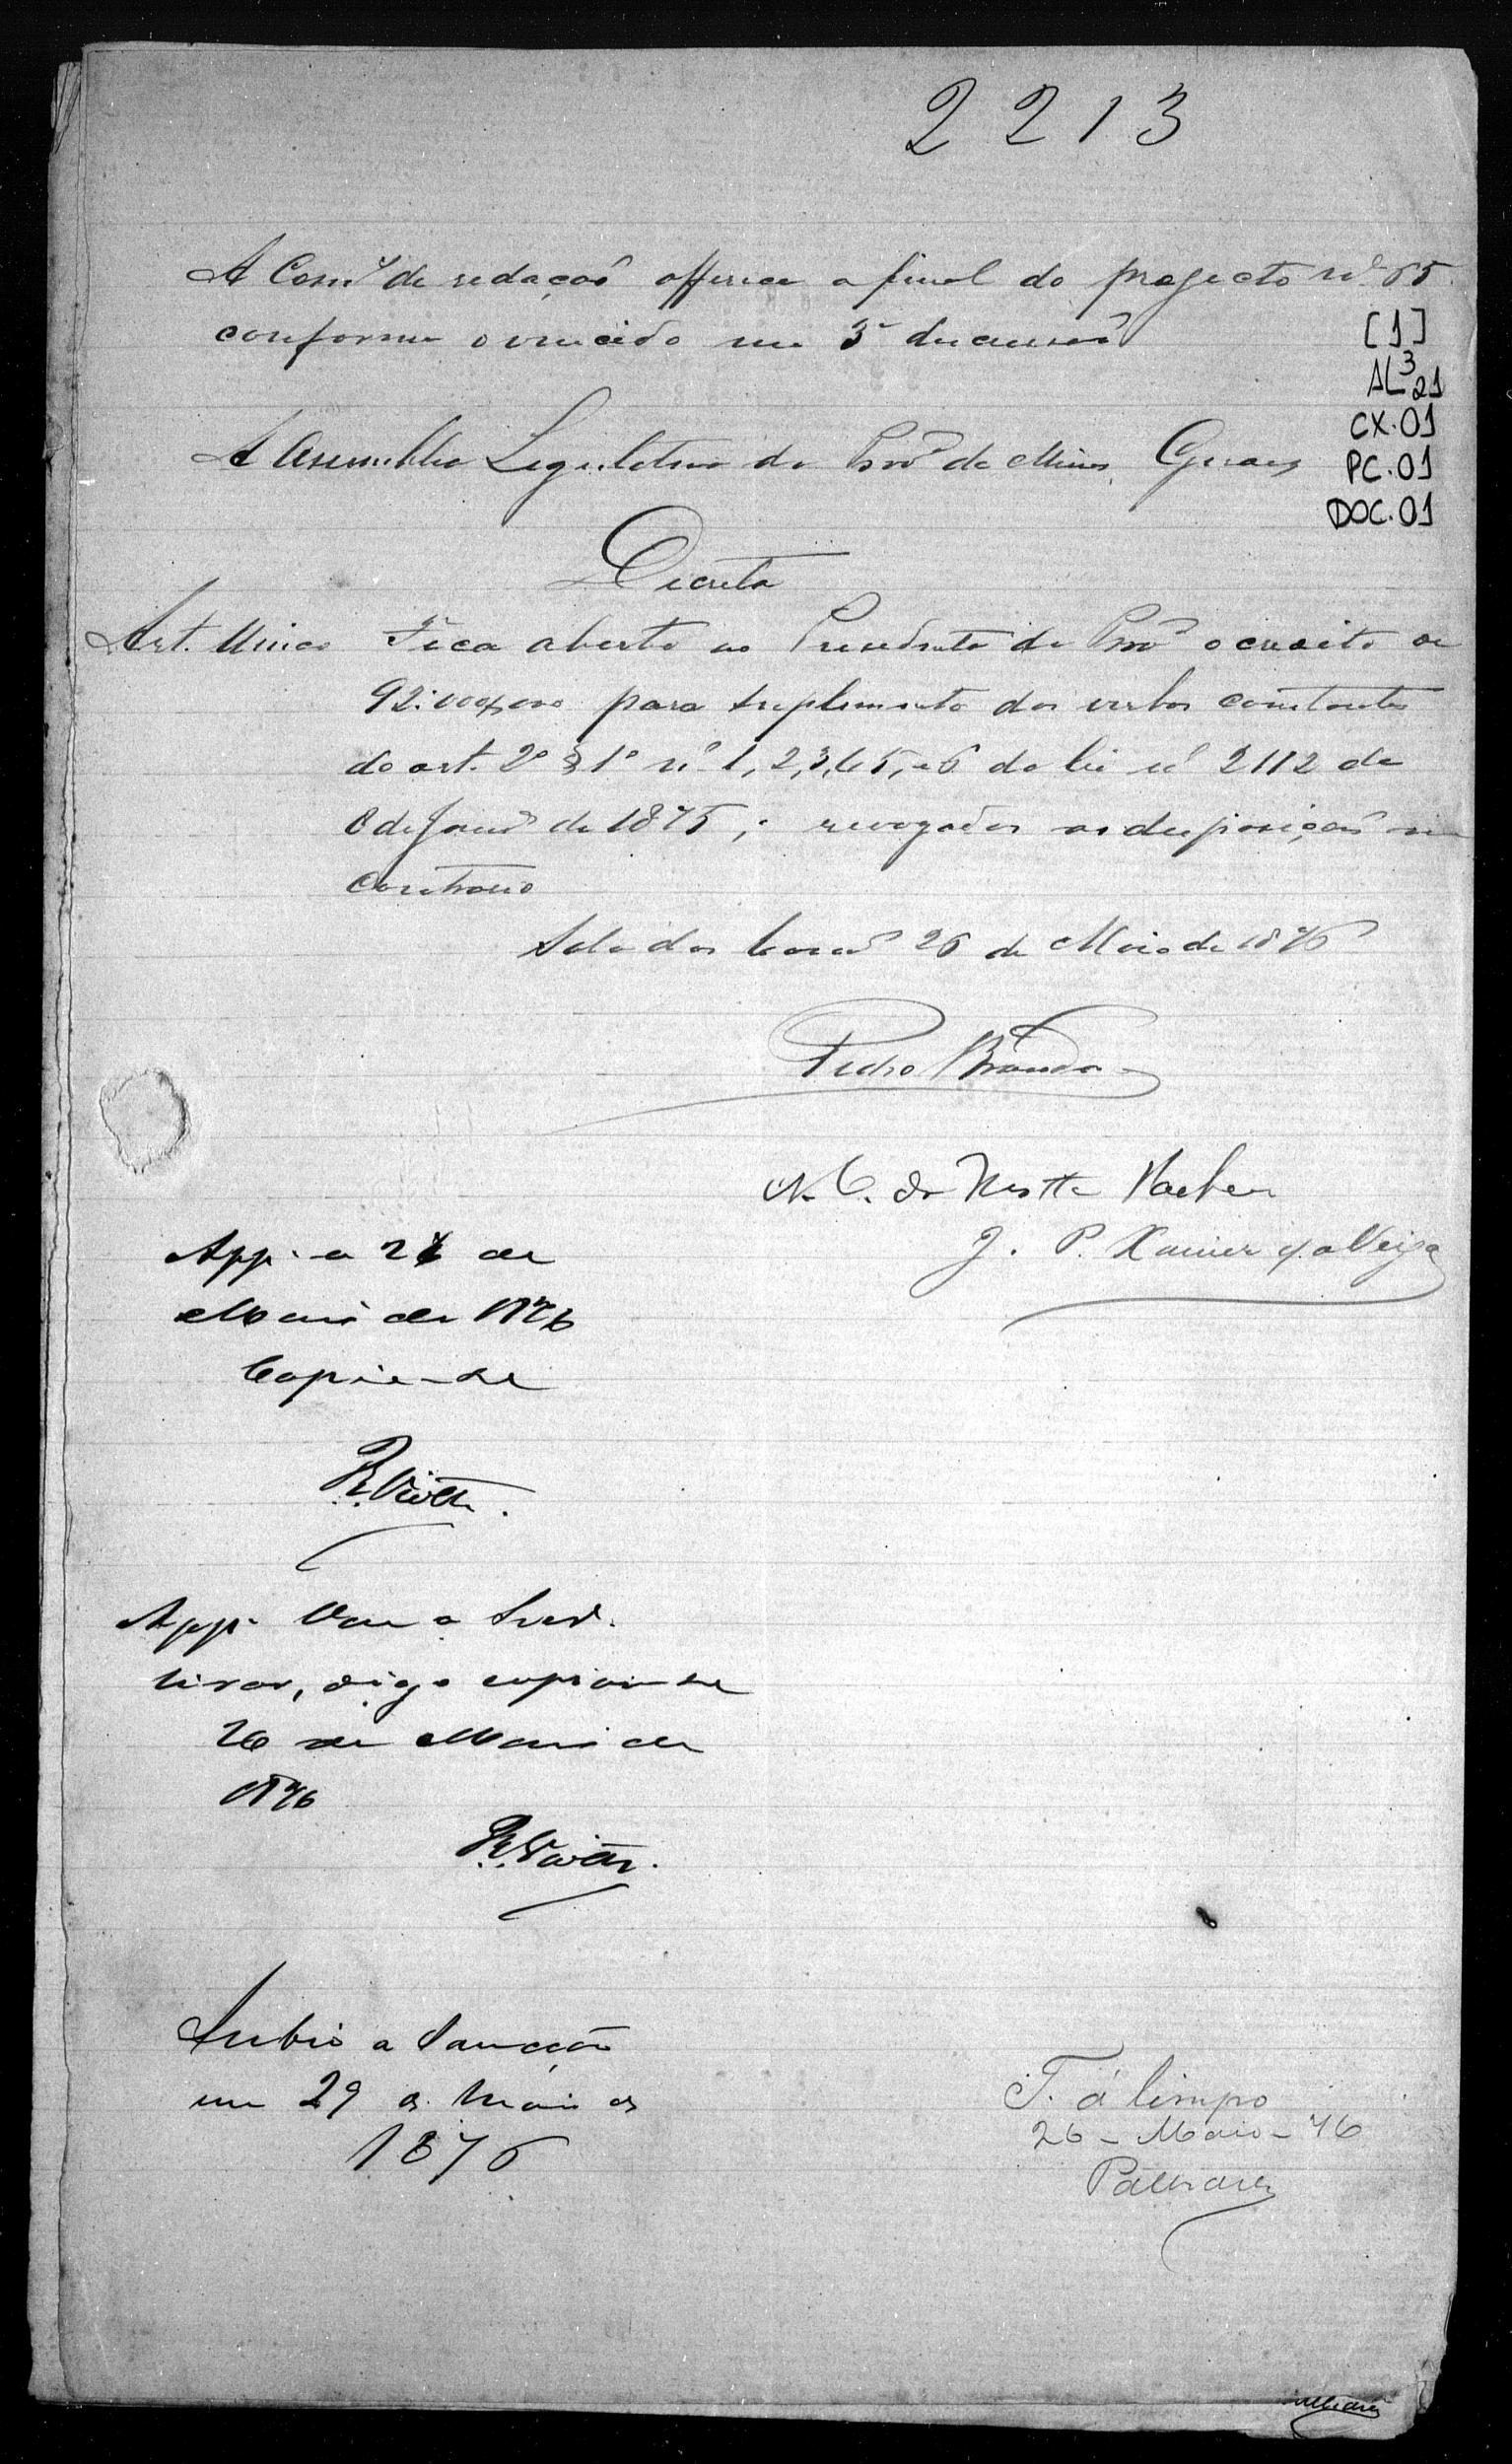 2213
A Com. de redação offerece a final do projecto nº 65
conforme o vencido em 3ª discussão
[1]
AL³21
CX.01
PC.01
DOC.01
A Assemblea Legislativa da Provª de Minas Geraes
Decreta
Art. Unico Fica aberto ao Presidente da Provª o credito de
92:000$000 para suplemento das verbas constantes
do art. 2º § 1º nº 1, 2, 3, 4, 5, e 6 da lei nº 2112 de
8 de Janrº de 1875; revogadas as disposições em
contrario
Sala das Comões 26 de Maio de 1876
Pedro Brandão
N. C. da Motta
J. P. Xavier da Veiga
App. a 26 de
Maio de 1876
Copie-se
B. Viotti.
App.
tirar, digo copiar-se
26 de Maio de
1876
B. Viotti.
Subio a Sancção
em 29 de Maio de
1876
T. á limpo
26 - Maio - 76
Palhares